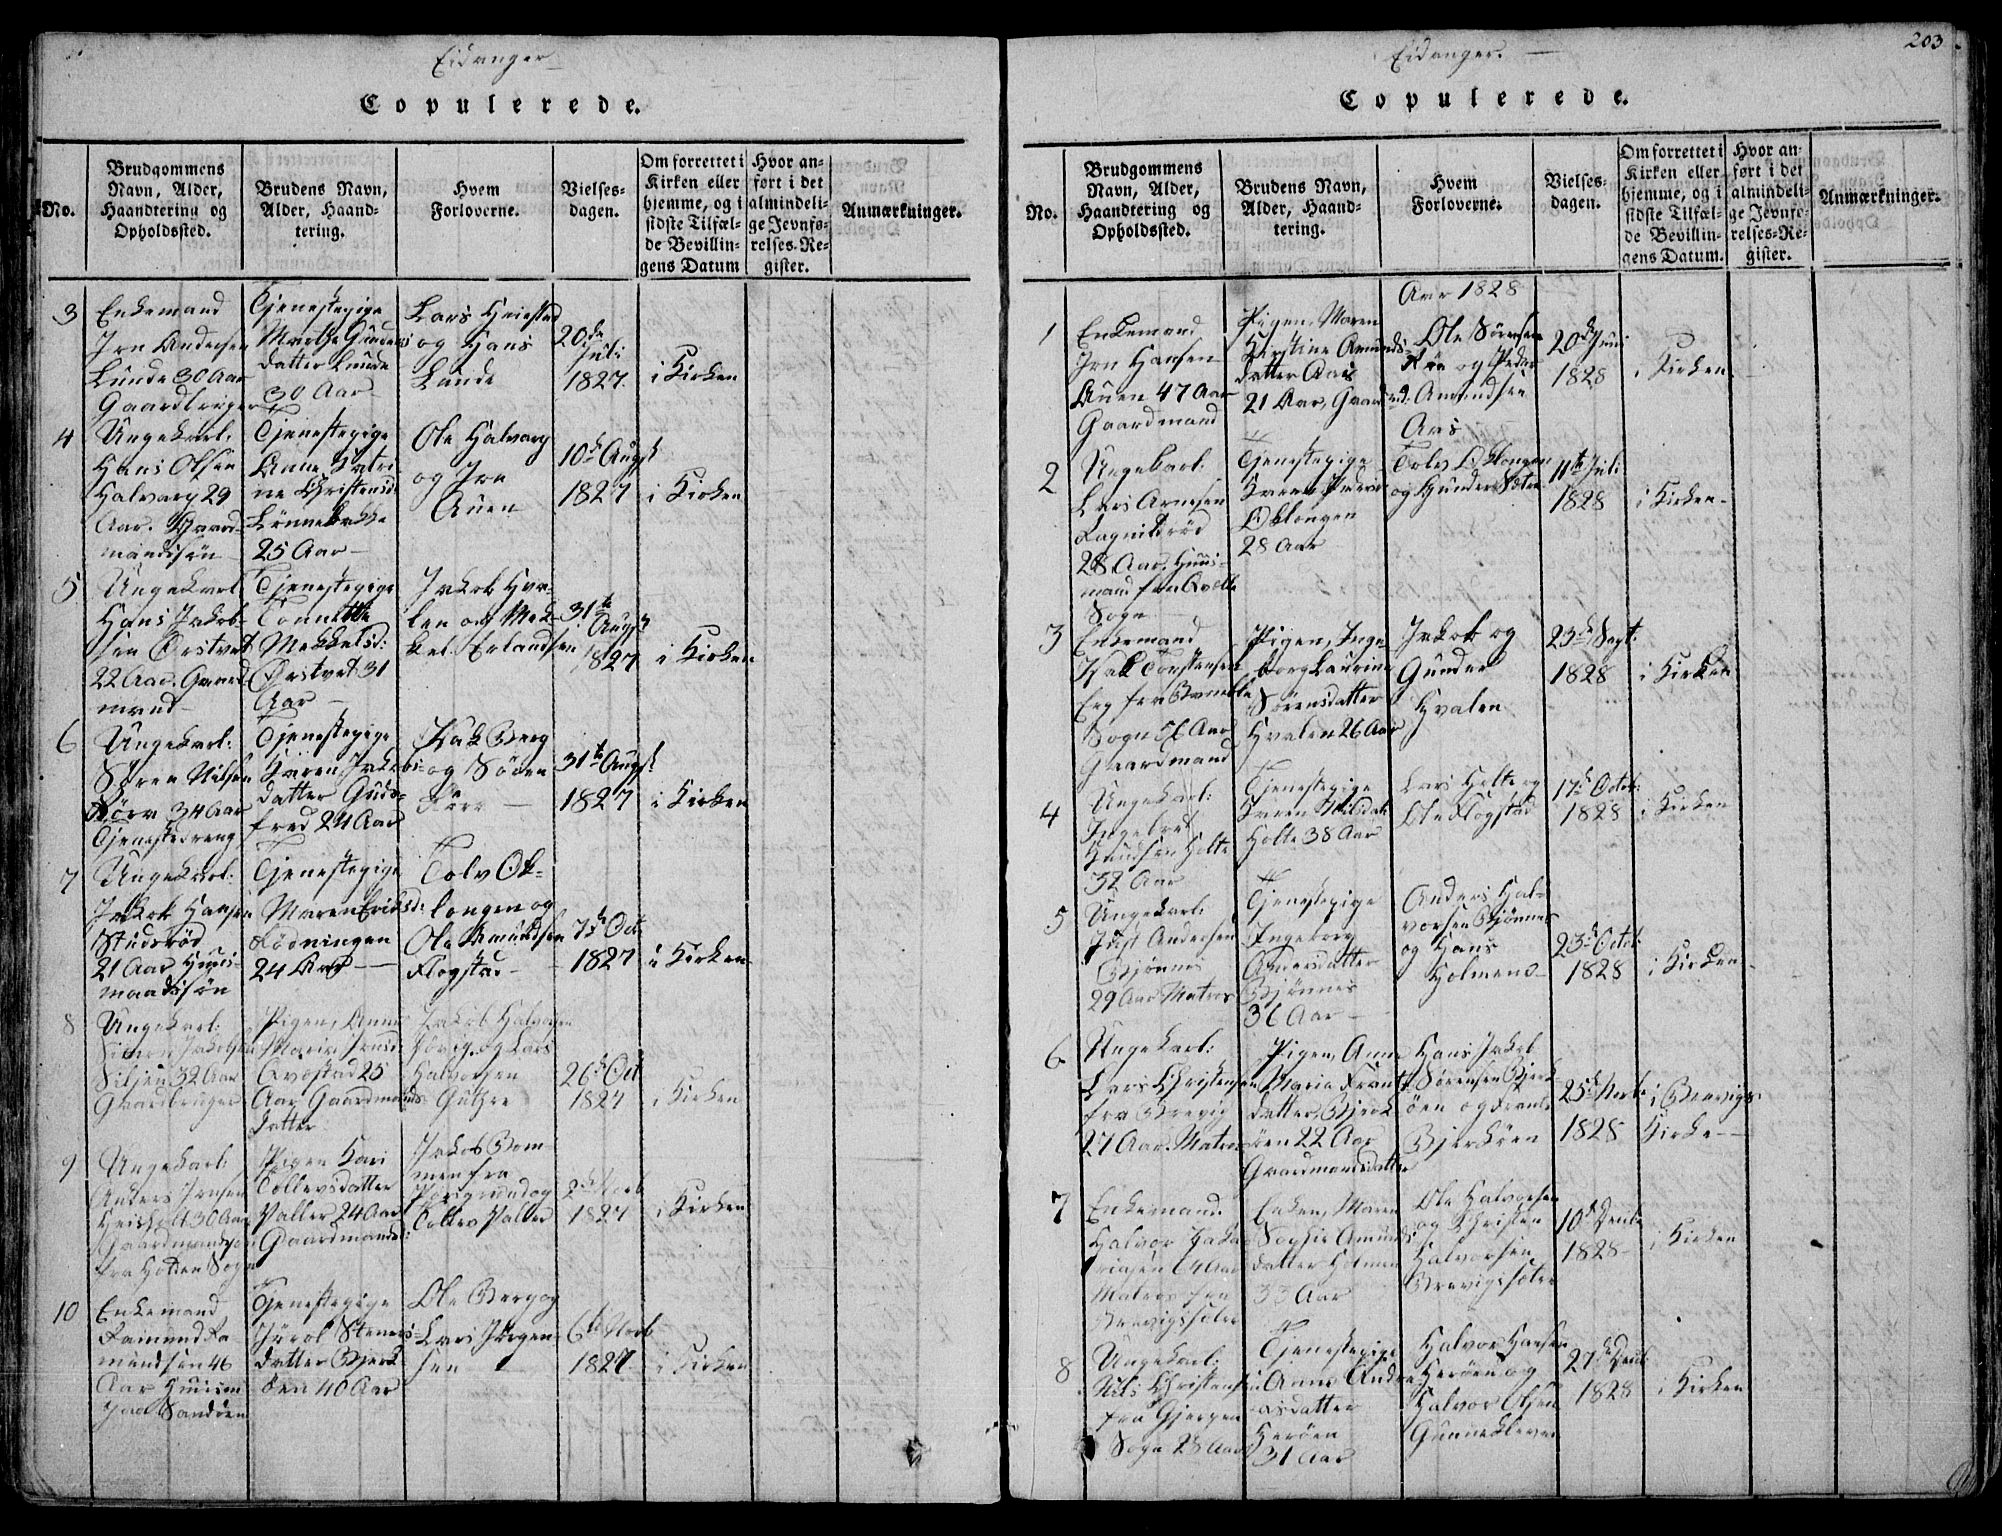 Eidanger
Copulerede.
No.
Brudgommens
Navn, Alder,
Haandtering og
Opholdssted.
Brudens Navn,
Alder, Haand-
tering.
Hvem
Forloverne.
Vielses-
dagen.
Om forrettet i
Kirken eller
hjemme, og i
sidste Tilfæl-
de Bevillin-
gens Datum
Hvor an-
ført i det
almindeli-
ge Jevnfø-
relses-Re-
gister.
Anmærkninger.
3
Enkemand
Jon Andersen
Lunde 30 Aar
Gaardbruger
Tjenestepige
Marthe Gunders
datter Lunde
30 Aar
Lars Heistad
og Hans
Lunde
20de
Juli
1827
i Kirken
4
Ungekarl:
Hans Olsen
Halvarp 29
Aar. Gaard-
mandssøn
Tjenestepige
Anne Katri
ne Christensd:
Lønnebakke
25 Aar
Ole Halvarp
og Jon
Auen
10de Augst
1827
i Kirken
5
Ungekarl
Hans Jakob-
sen Ørstvet
22 Aar. Gaard
mand
Tjenestepige
Tonnette
Mekkelsd:
Ørstvet 31
Aar
Jakob Hva-
len og Mek-
kel Erlandsen
31te
Augst
1827
i Kirken
6
Ungekarl:
Søren Nilsen
34 Aar
Tjenestedreng
Tjenestepige
Karen Jakobs-
datter Guds-
fred 24 Aar
Isak Berg
og Søren
31te Augst
1827
i Kirken
7
Ungekarl:
Jakob Hansen
Studsrød
21 Aar Huus-
mandssøn
Tjenestepige
Maren Eriksd:
Rødningen
24 Aar
Tolv Ok-
longen og
Ole Amundsen
Flogstad
7de Oct
1827
i Kirken
8
Ungekarl:
Simen Jakobsen
Siljen 32 Aar
Gaardbruger
Pigen, Anne
Marie Jensd:
Qvestad 25
Aar Gaardmands
datter
Jakob Halvorsen
og Lars
Halvorsen
26de Oct
1827
i Kirken
9
Ungekarl:
Anders Jensen
30 Aar
Gaardmandssøn
fra Sogn
Pigen Kari
Tollevsdatter
Valler 24 Aar
Gaardmandsd:
Jakob Bom-
men fra
Porsgrund og
Tollev Valler
2den Novb
1827
i Kirken
10
Enkemand
Ramund Ra
mundsen 46
Aar Huusm
paa Sandøen
Tjenestepige
Steners-
datter Bjerk
øen 40 Aar
Ole Berg og
Lars Jørgen-
sen
6te Novb
1827
i Kirken
203
Eidanger.
Copulerede.
No.
Brudgommens
Navn, Alder,
Haandtering og
Opholdssted.
Brudens Navn,
Alder, Haand-
tering.
Hvem
Forloverne.
Vielses-
dagen.
Om forrettet i
Kirken eller
hjemme, og i
sidste Tilfæl-
de Bevillin-
gens Datum.
Hvor an-
ført i det
almindeli-
ge Jevnfø-
relses-Re-
gister.
Anmærkninger.
Aar 1828
1
Enkemand
Jon Hansen
Auen 47 Aar
Gaardmand
Pigen, Maren
Kirstine Amunds-
datter Aas
21 Aar, Gaardmd:
Ole Sørensen
og Peder
Amundsen
Aas
20de Juni
1828
i Kirken
2
Ungekarl:
Lars Arnesen
Ragnildrød
28 Aar. Huus-
mand fra Qvelle
Sogn
Tjenestepige
Karen Peders
Oklongen
28 Aar
Tolv Oklongen
og Gunder Sætre
11te Juli
1828
i Kirken
3
Enkemand
Isak Torstensen
Eeg fra Bamble
Sogn 56 Aar
Gaardmand
Pigen, Inge
borg Laurine
Sørensdatter
Hvalen 26 Aar
Jakob og
Gunder
Hvalen
23de Sept:
1828
i Kirken
4
Ungekarl:
Ingebret
Knudsen Holte
32 Aar
Tjenestepige
Karen Nilsdat
Holte 38 Aar
Lars Holte og
Ole Flogstad
17de Octob:
1828
i Kirken
5
Ungekarl:
Just Andersen
Bjønnes
29 Aar Matros
Tjenestepige
Ingeborg
Andersdatter
Bjønnes
36 Aar
Anders Hal-
vorsen Bjønnes
og Hans
Holmens
23de Octb:
1828
i Kirken
6
Ungekarl:
Lars Christensen
fra Brevig
27 Aar Matros
Pigen, Anne
Maria Frants
datter, Bjerk
øen 22 Aar
Gaardmandsdatter
Hans Jakob
Sørensen Bjerk
øen og Frants
Bjerkøen
25de Novb:
1828
i Brevigs
Kirke
7
Enkemand
Halvor Zaka
riasen 64 Aar
Matros fra
Brevigsstre
Enken, Maren
Sophie Amunds
datter Holmen
33 Aar
Ole Halvorsen
og Christen
Halvorsen
Brevigsstre
10de Decbr
1828
i Kirken
8
Ungekarl:
Nils Christensen
fra Gjerpen
Sogn 28 Aar
Tjenestepige
Anne Andre
asdatter
Herøen
31 Aar
Halvor Hansen
Herøen og
Halvor Olsen
Gunneklever
27de Decb:
1828
i Kirken